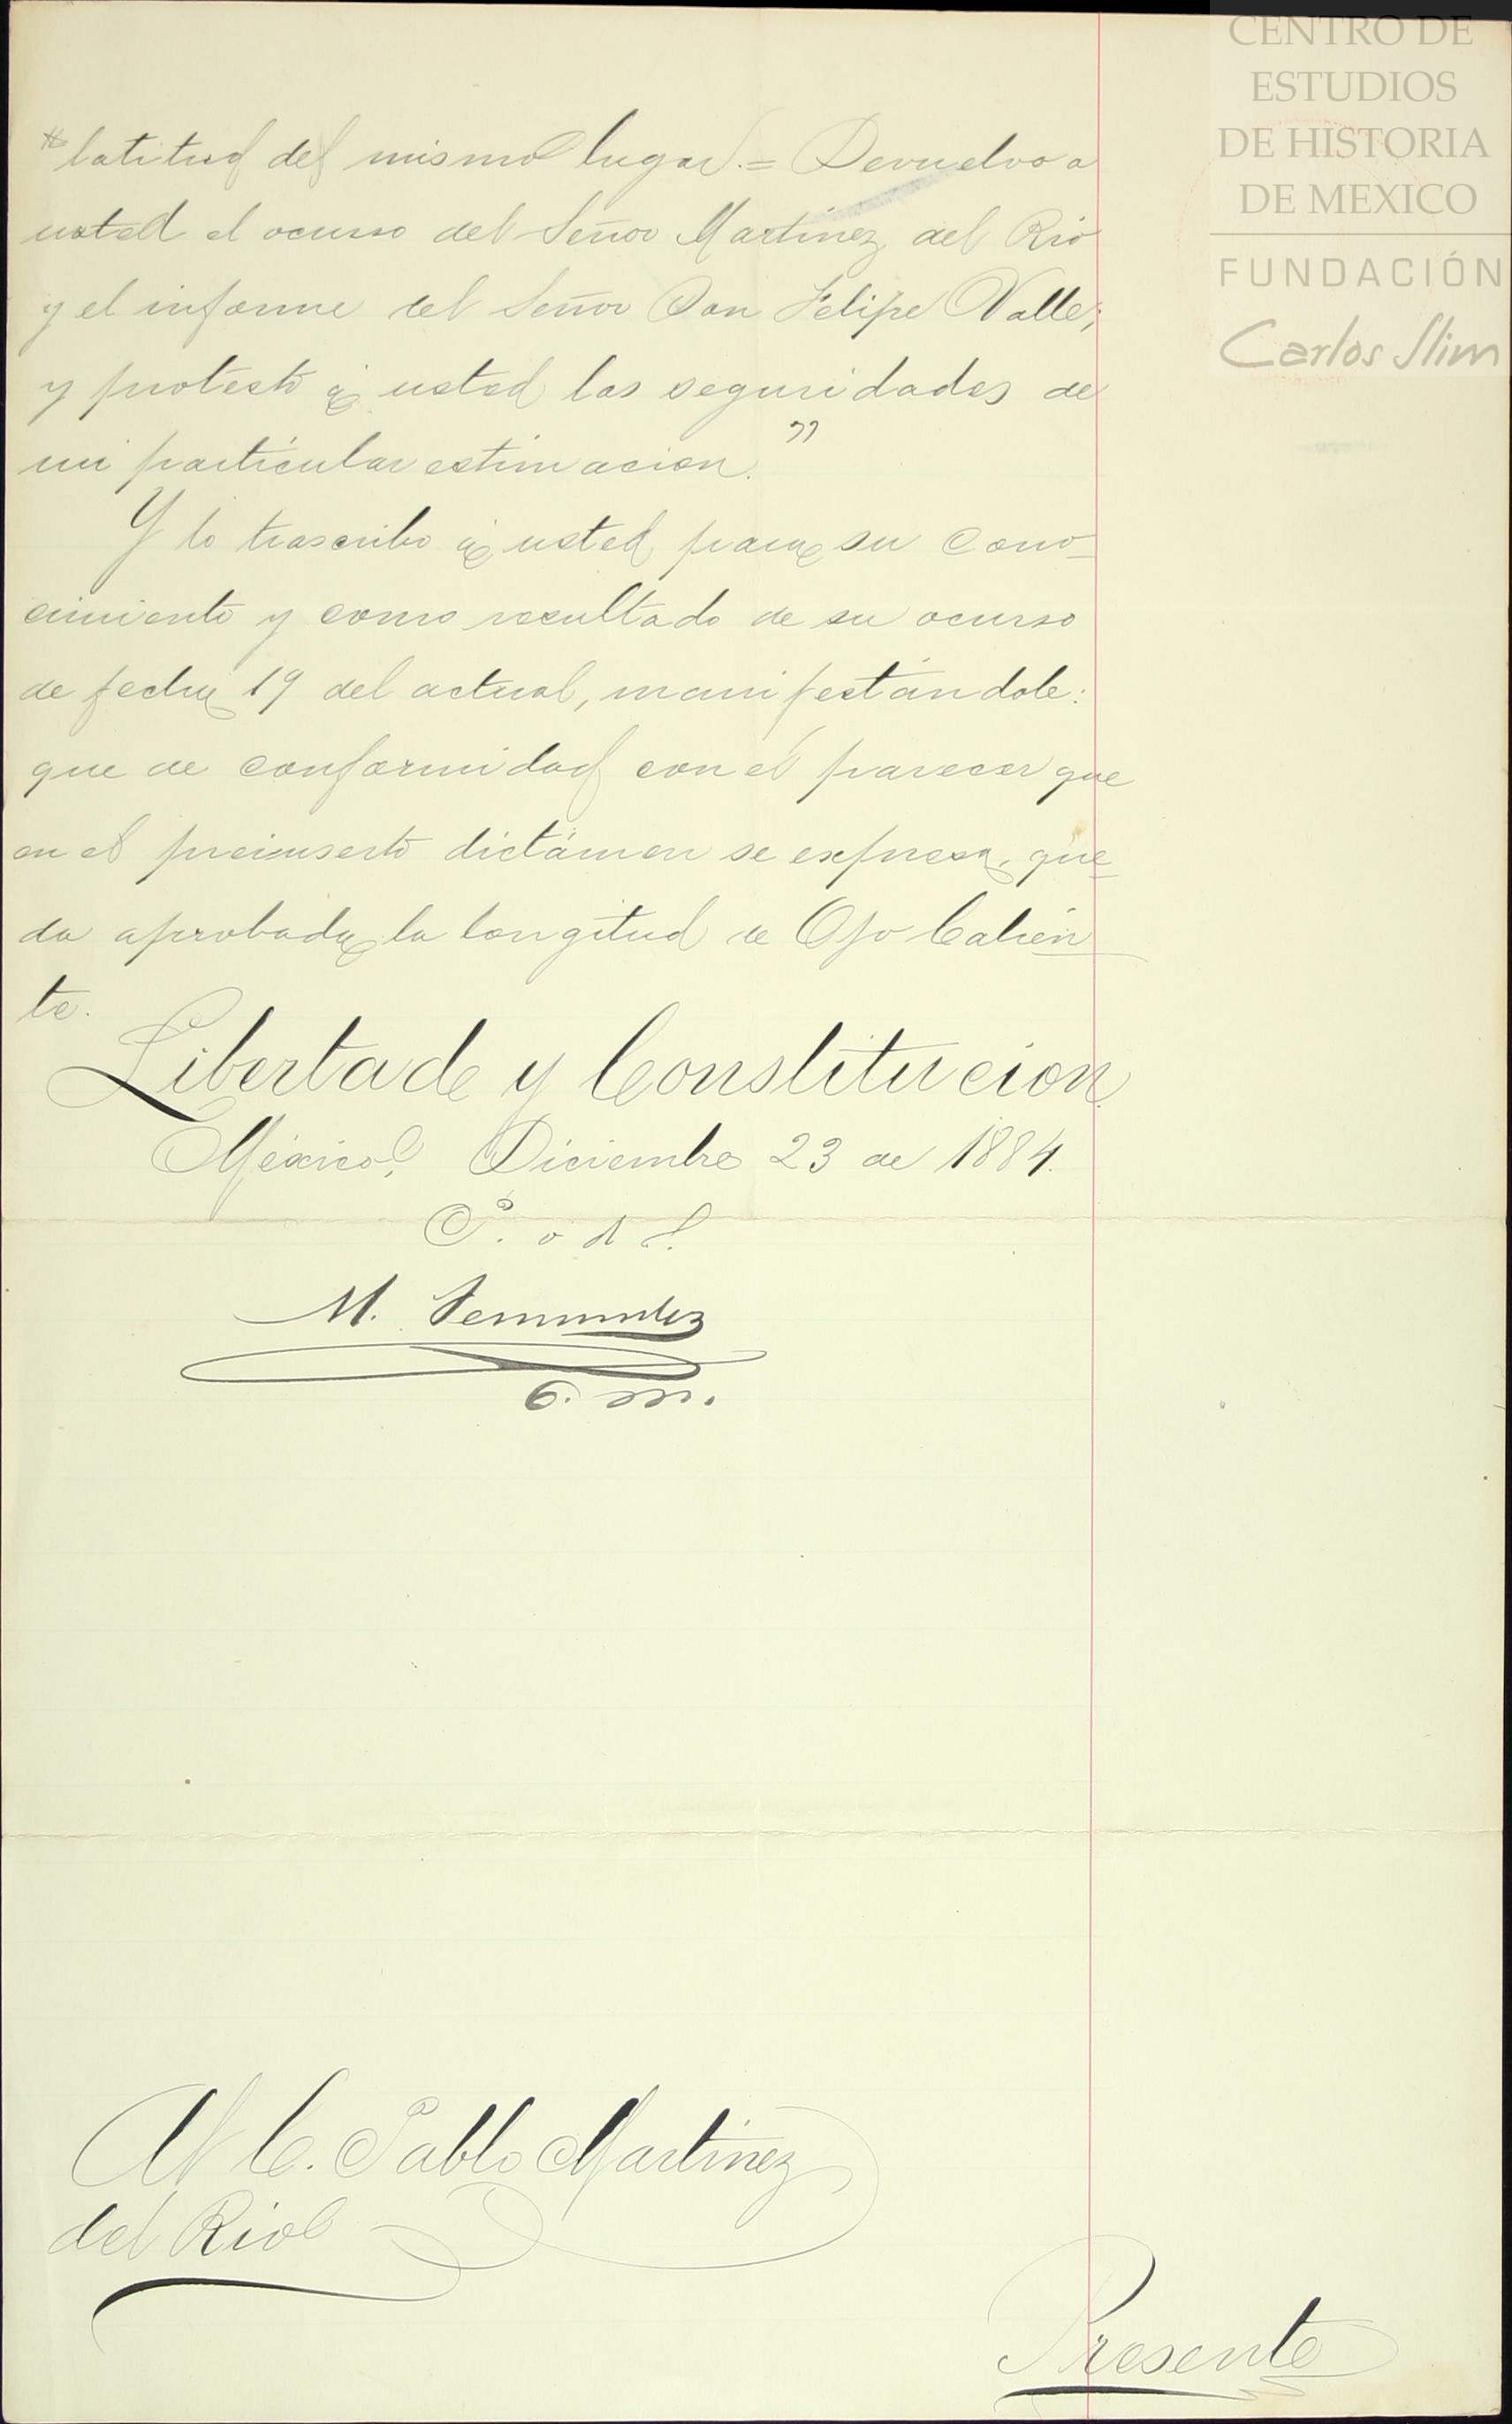 CENTRO DE
ESTUDIOS
DE HISTORIA
DE MEXICO
FUNDACIÓN
Carlos Slim
latitud del mismo lugar.= Devuelvo a
usted el ocurso del Señor Martinez del Rio
y el informe del Señor Don Felipe Valle;
y protesto á usted las seguridades de
mi particular estimacion.”
Y lo trascribo á usted para su cono-
cimiento y como resultado de su ocurso
de fecha 19 del actual, manifestándole:
que de conformidad con el parecer que
en el preinserto dictámen se expresa, que-
da aprobada la longitud de Ojo Calien
te.
Libertad y Constitucion
México, Diciembre 23 de 1884.
P. o d S.
M. Fernandez
O. m.
Al C. Pablo Martinez
del Rio
Presente